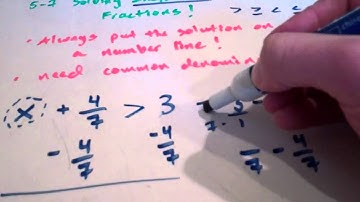 5-7 Solving
Fractions! > ≥ < ≤
• Always put the solution on
a number line!
• need common denomin
x + 4/7 > 3
- 4/7 - 4/7
- 4/7